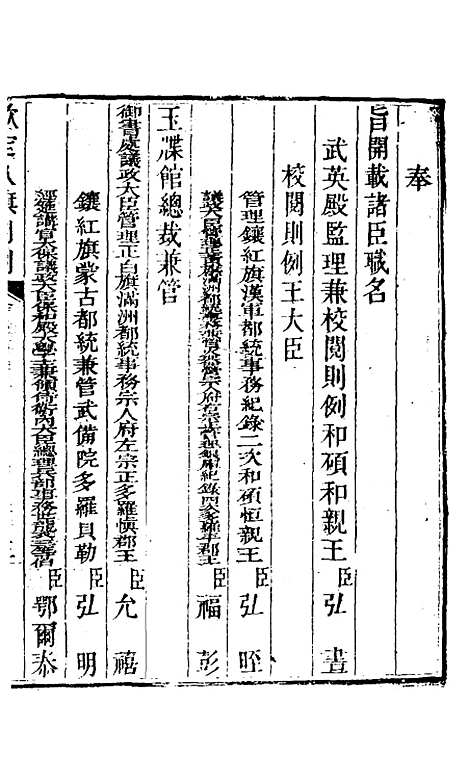 奉
旨開載諸臣職名
武英殿監理兼校閱則例和碩和親王臣弘晝
校閱則例王大臣
管理鑲紅旗漢軍都統事務紀錄二次和碩恒親王臣弘晊
議政大臣管理正滿洲都統事務宗人府宗正管理紀錄四次多羅平郡王臣福彭
玉牒館總裁兼管
御書處議政大臣管理正白旗滿洲都統事務宗人府左宗正多羅慎郡王臣允禧
鑲紅旗蒙古都統兼管武備院多羅貝勒臣弘明
經筵講官太保議政大臣保和殿大學士兼領侍衛內大臣總理兵部事務世襲三等伯臣鄂爾泰
欽定八旗則例